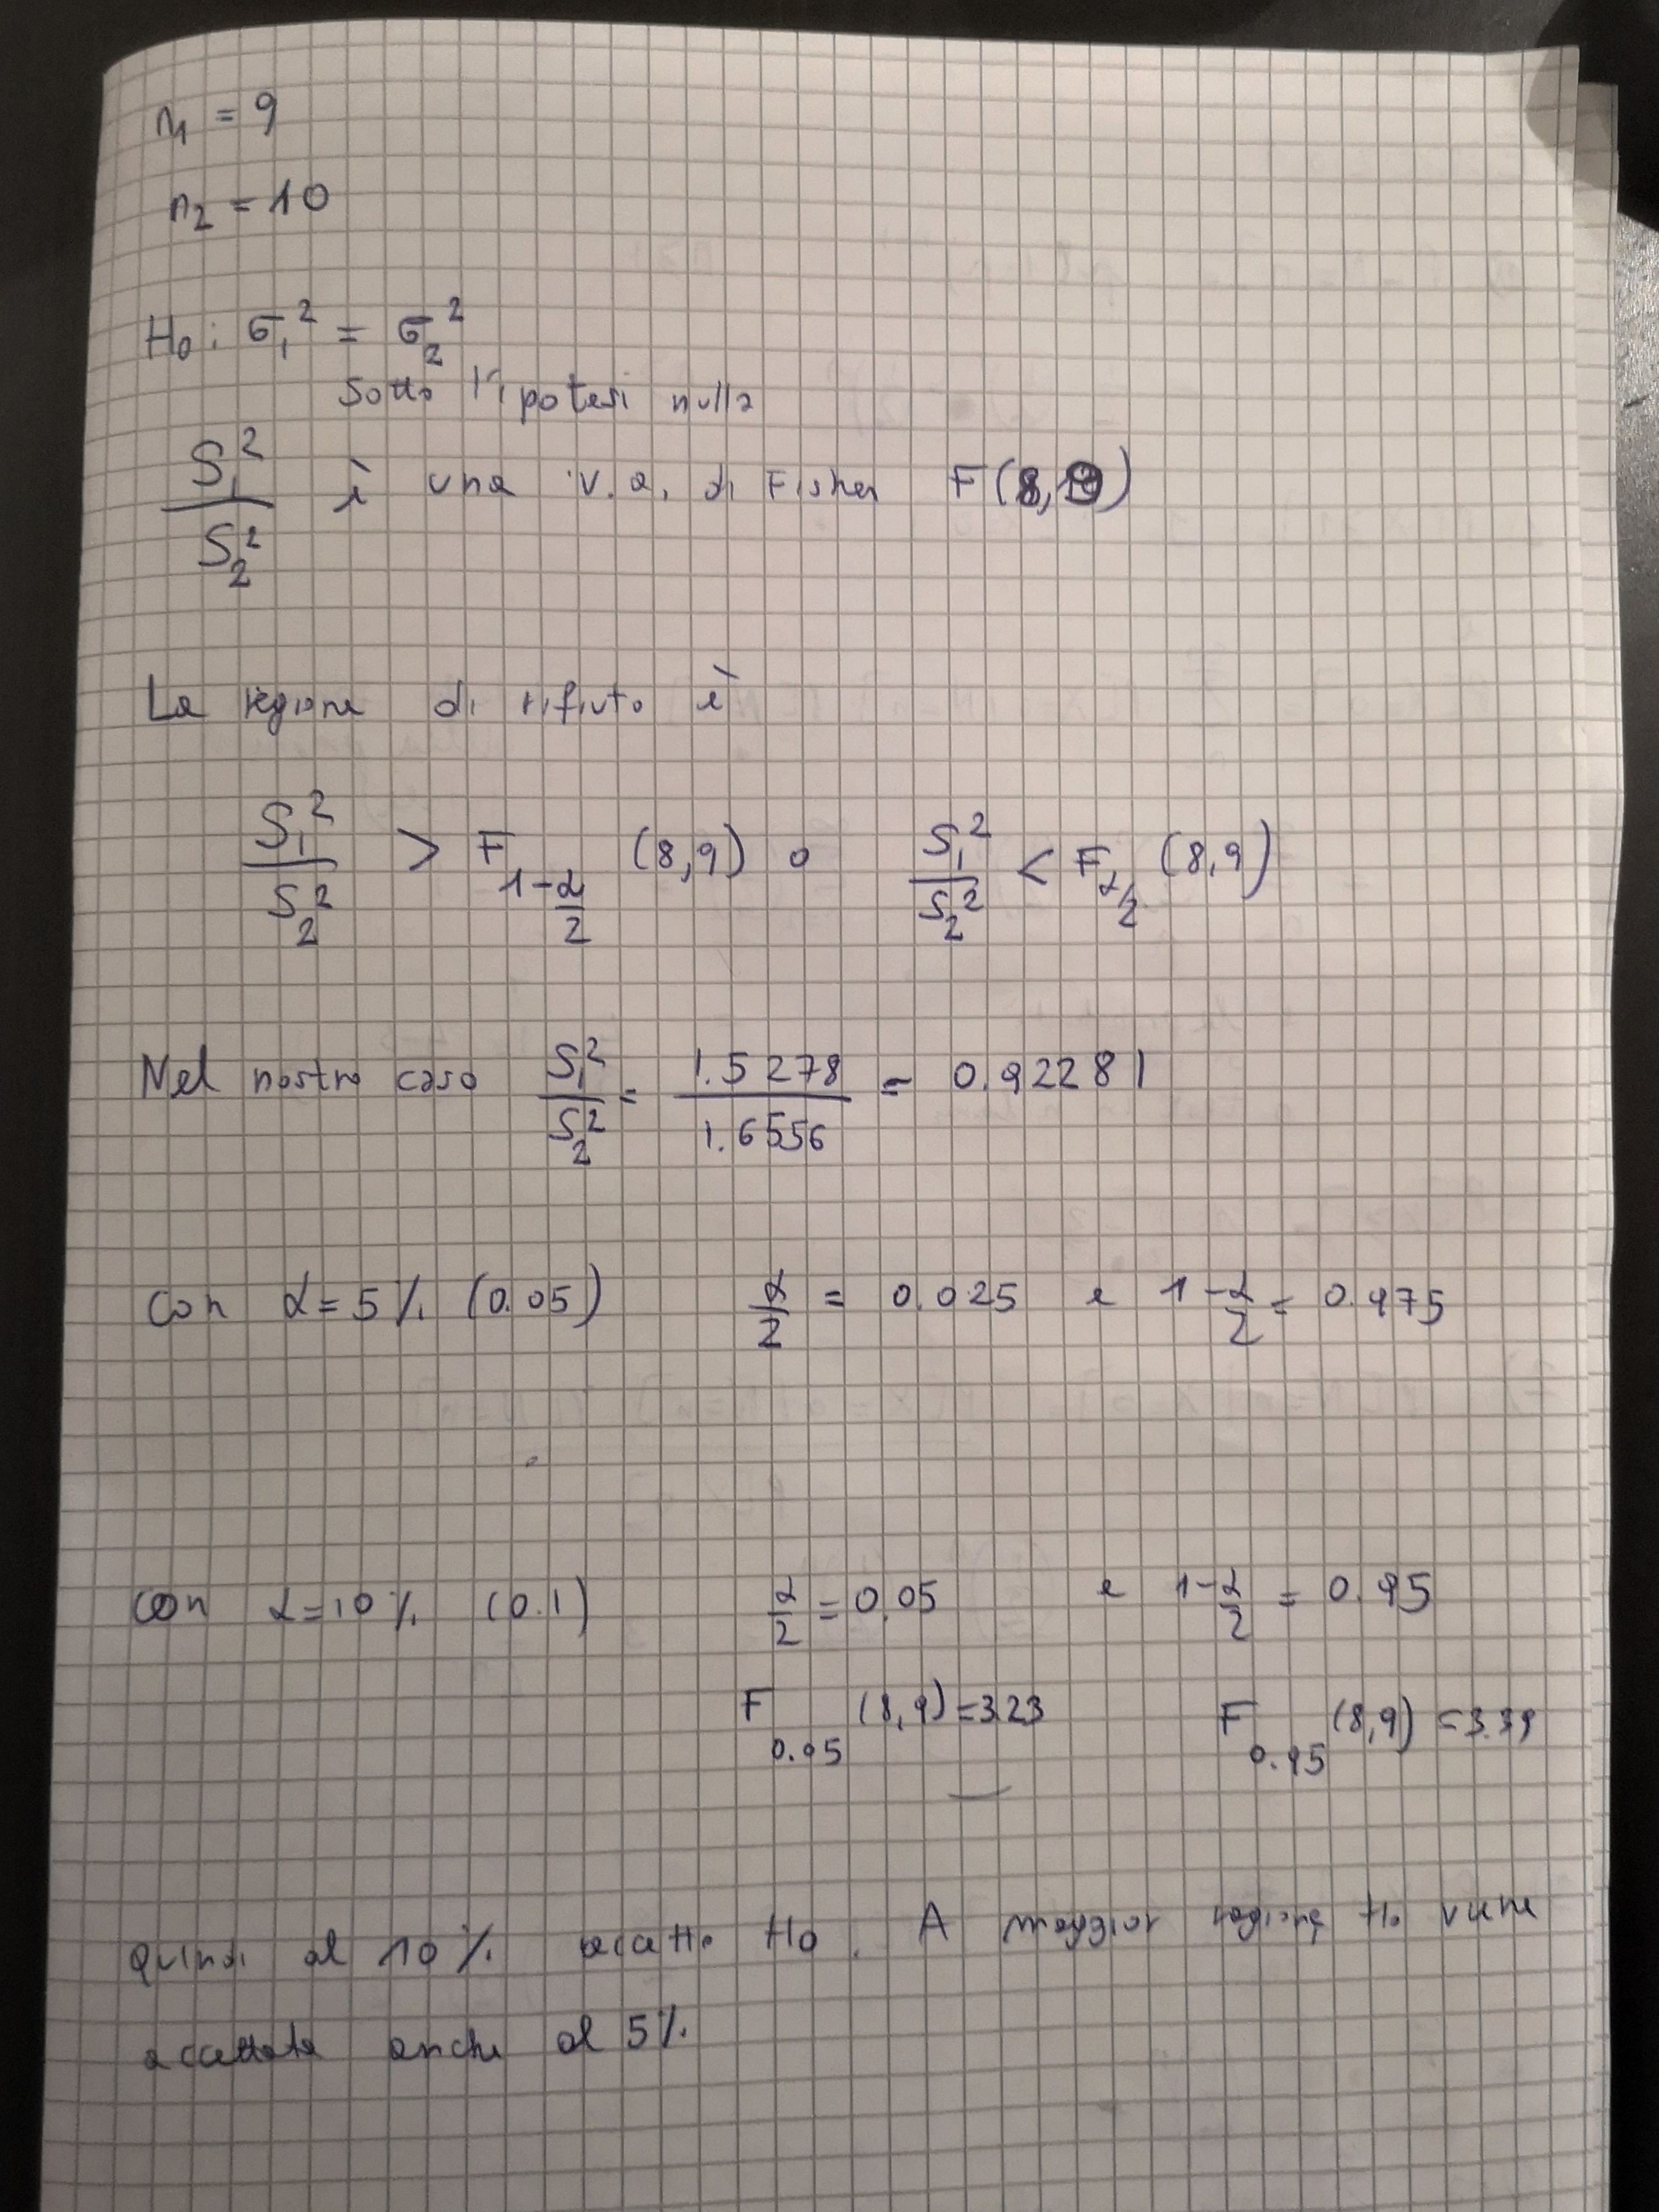 n₁ = 9
n₂ = 10
H₀: σ₁² = σ₂²
sotto l'ipotesi nulla
S₁²/S₂² è una v.a. di Fisher F(8,9)
La regione di rifiuto è
S₁²/S₂² > F_{1-α/2} (8,9) o S₁²/S₂² < F_{α/2} (8,9)
Nel nostro caso S₁²/S₂² = 1.5278/1.6556 = 0.92281
Con α = 5% (0.05) α/2 = 0.025 e 1-α/2 = 0.975
con α = 10% (0.1) α/2 = 0.05 e 1-α/2 = 0.95
F_{0.95} (8,9) = 3.23 F_{0.95} (8,9) = 3.39
Quindi al 10% accetto H₀. A maggior ragione H₀ viene
accettata anche al 5%.